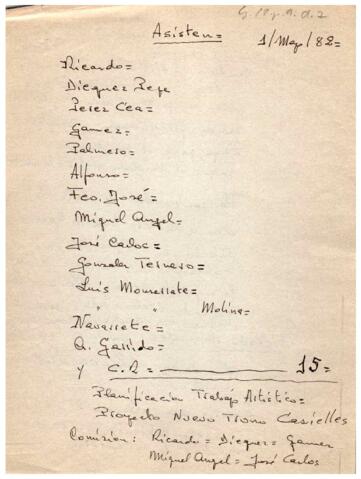 Asisten=
1/Mayo/82=
Ricardo=
Dieguez Pepe
Perez Cea=
Gamez=
Palmero=
Alfonso=
Fco. José=
Miguel Angel=
José Carlos=
Gonzalo Ternero=
Luis Monserrate=
" " Molina=
Navarrete=
A. Garrido=
y C.R= 15=
Planificacion Trabajo Artistico=
Proyecto Nuevo Trono Casielles
Comision: Ricardo= Dieguez= Gamez
Miguel Angel= José Carlos